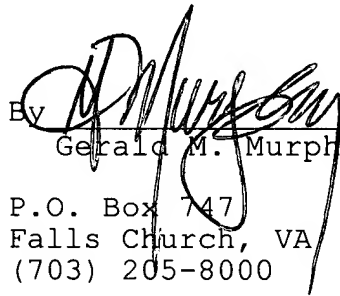 By
Gerald M. Murph
P.O. Box 747
Falls Church, VA
(703) 205-8000